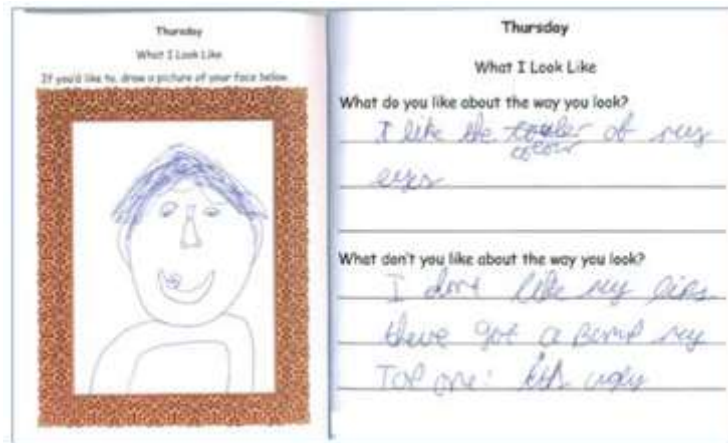 Thursday
What I Look Like
If you'd like to, draw a picture of your face below
Thursday
What I Look Like
What do you like about the way you look?
I like the couler of my
colour
eyes
What don't you like about the way you look?
I dont like my lips
theve got a Bump my
Top one: its ugly